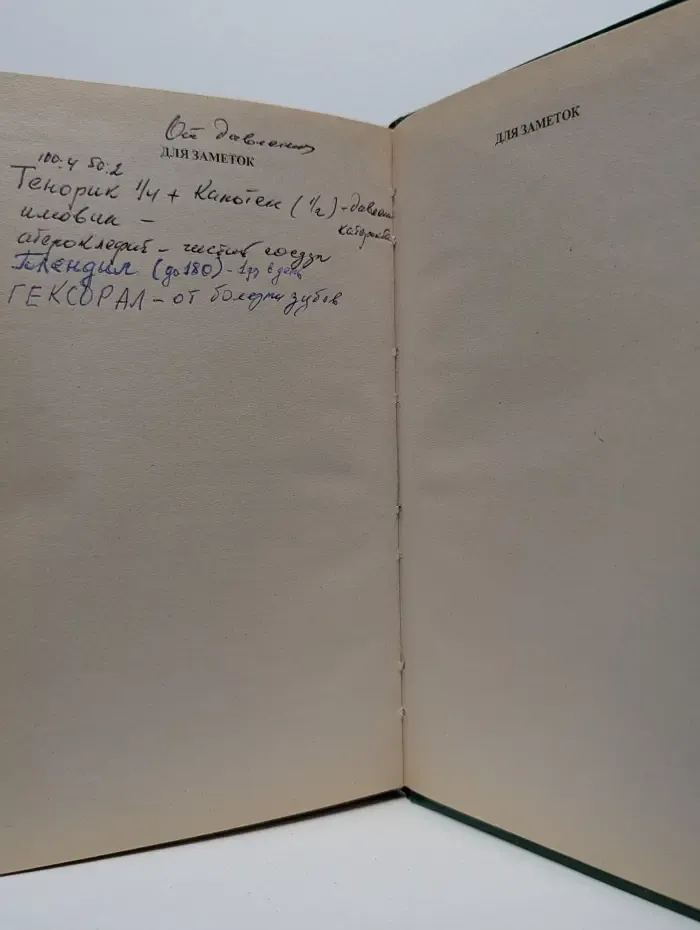 От давления
ДЛЯ ЗАМЕТОК
100:4 50:2
Тенорик 1/4 + Капотен (1/2) - давлен
имовин -
атероклефит - чистит сосуды
Плендил (до 180) - 1 р в день
ГЕКСОРАЛ - от болезни зубов
ДЛЯ ЗАМЕТОК